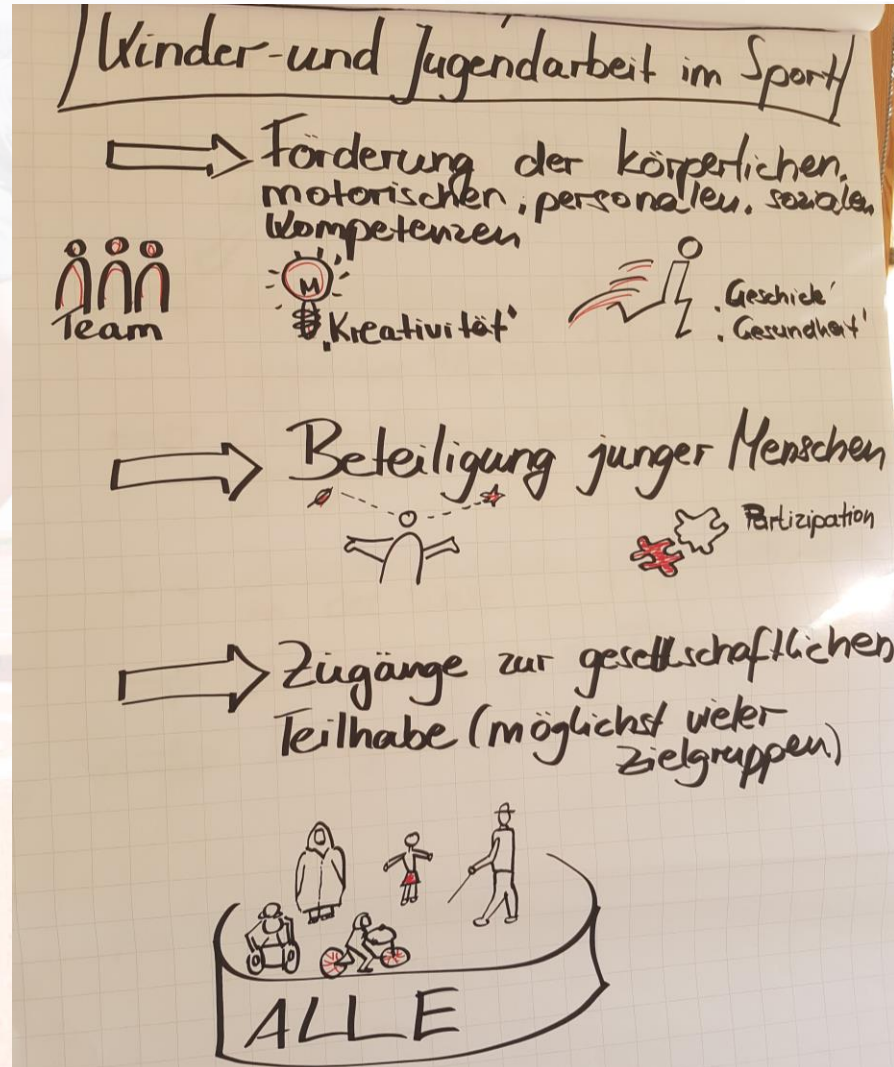 Kinder-und Jugendarbeit im Sport
Förderung der körperlichen,
motorischen, personalen, sozialen
Kompetenzen
Team
"Kreativität"
"Geschick"
"Gesundheit"
Beteiligung junger Menschen
Partizipation
Zugänge zur gesellschaftlichen
Teilhabe (möglichst vieler
Zielgruppen)
ALLE